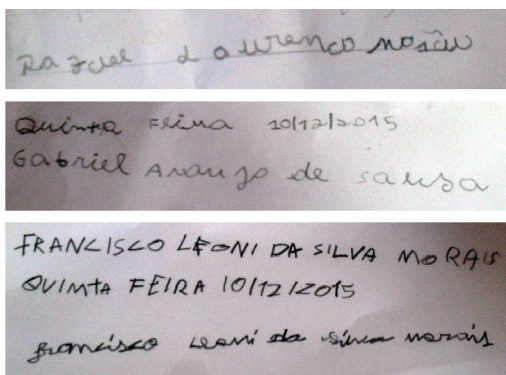 Lourenco
Quinta Feira 10/12/2015
Gabriel Araujo de sausa
FRANCISCO LEONI DA SILVA MORAIS
QUINTA FEIRA 10/12/2015
francisco Leoni da silva morais